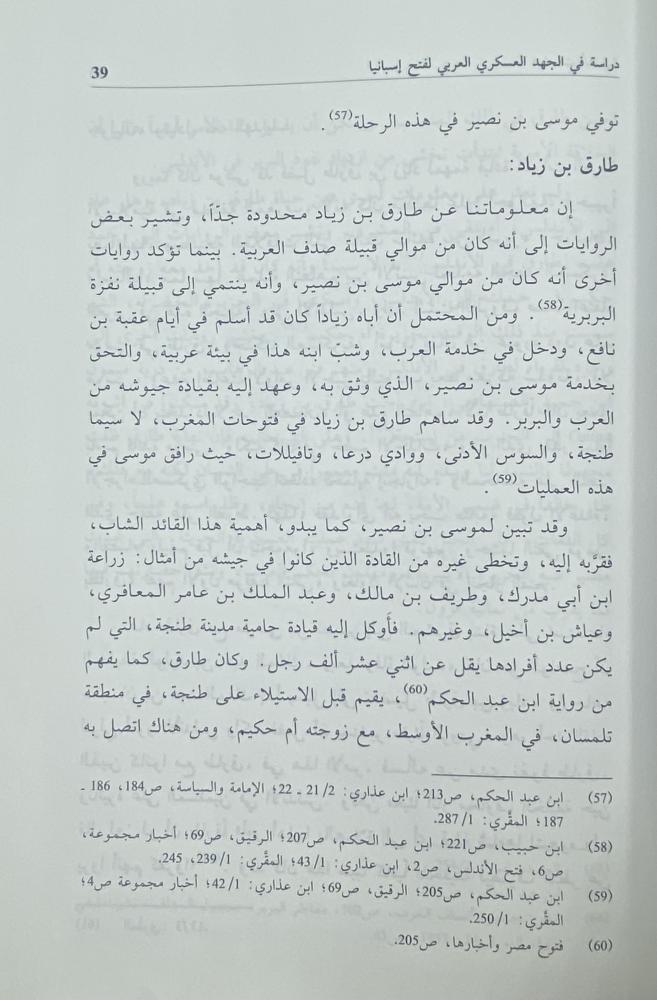 دراسة في الجهد العسكري العربي لفتح إسبانيا 39
توفي موسى بن نصير في هذه الرحلة(57).
طارق بن زياد:
إن معلوماتنا عن طارق بن زياد محدودة جدّاً، وتشير بعض
الروايات إلى أنه كان من موالي قبيلة صدف العربية. بينما تؤكد روايات
أخرى أنه كان من موالي موسى بن نصير، وأنه ينتمي إلى قبيلة نفزة
البربرية(58). ومن المحتمل أن أباه زياداً كان قد أسلم في أيام عقبة بن
نافع، ودخل في خدمة العرب، وشبّ ابنه هذا في بيئة عربية، والتحق
بخدمة موسى بن نصير، الذي وثق به، وعهد إليه بقيادة جيوشه من
العرب والبربر. وقد ساهم طارق بن زياد في فتوحات المغرب، لا سيما
طنجة، والسوس الأدنى، ووادي درعا، وتافيللات، حيث رافق موسى في
هذه العمليات(59).
وقد تبين لموسى بن نصير، كما يبدو، أهمية هذا القائد الشاب،
فقرَّبه إليه، وتخطى غيره من القادة الذين كانوا في جيشه من أمثال: زراعة
ابن أبي مدرك، وطريف بن مالك، وعبد الملك بن عامر المعافري،
وعياش بن أخيل، وغيرهم. فأَوكل إليه قيادة حامية مدينة طنجة، التي لم
يكن عدد أفرادها يقل عن اثني عشر ألف رجل. وكان طارق، كما يفهم
من رواية ابن عبد الحكم(60)، يقيم قبل الاستيلاء على طنجة، في منطقة
تلمسان، في المغرب الأوسط، مع زوجته أم حكيم، ومن هناك اتصل به
(57) ابن عبد الحكم، ص213؛ ابن عذاري: 2/ 21 ـ 22؛ الإمامة والسياسة، ص184، 186 ـ
187؛ المقّري: 1/ 287.
(58) ابن حبيب، ص221؛ ابن عبد الحكم، ص207؛ الرقيق، ص69؛ أخبار مجموعة،
ص6، فتح الأندلس، ص2، ابن عذاري: 1/ 43؛ المقّري: 1/ 239، 245.
(59) ابن عبد الحكم، ص205؛ الرقيق، ص69؛ ابن عذاري: 1/ 42؛ أخبار مجموعة ص4؛
المقّري: 1/ 250.
(60) فتوح مصر وأخبارها، ص205.